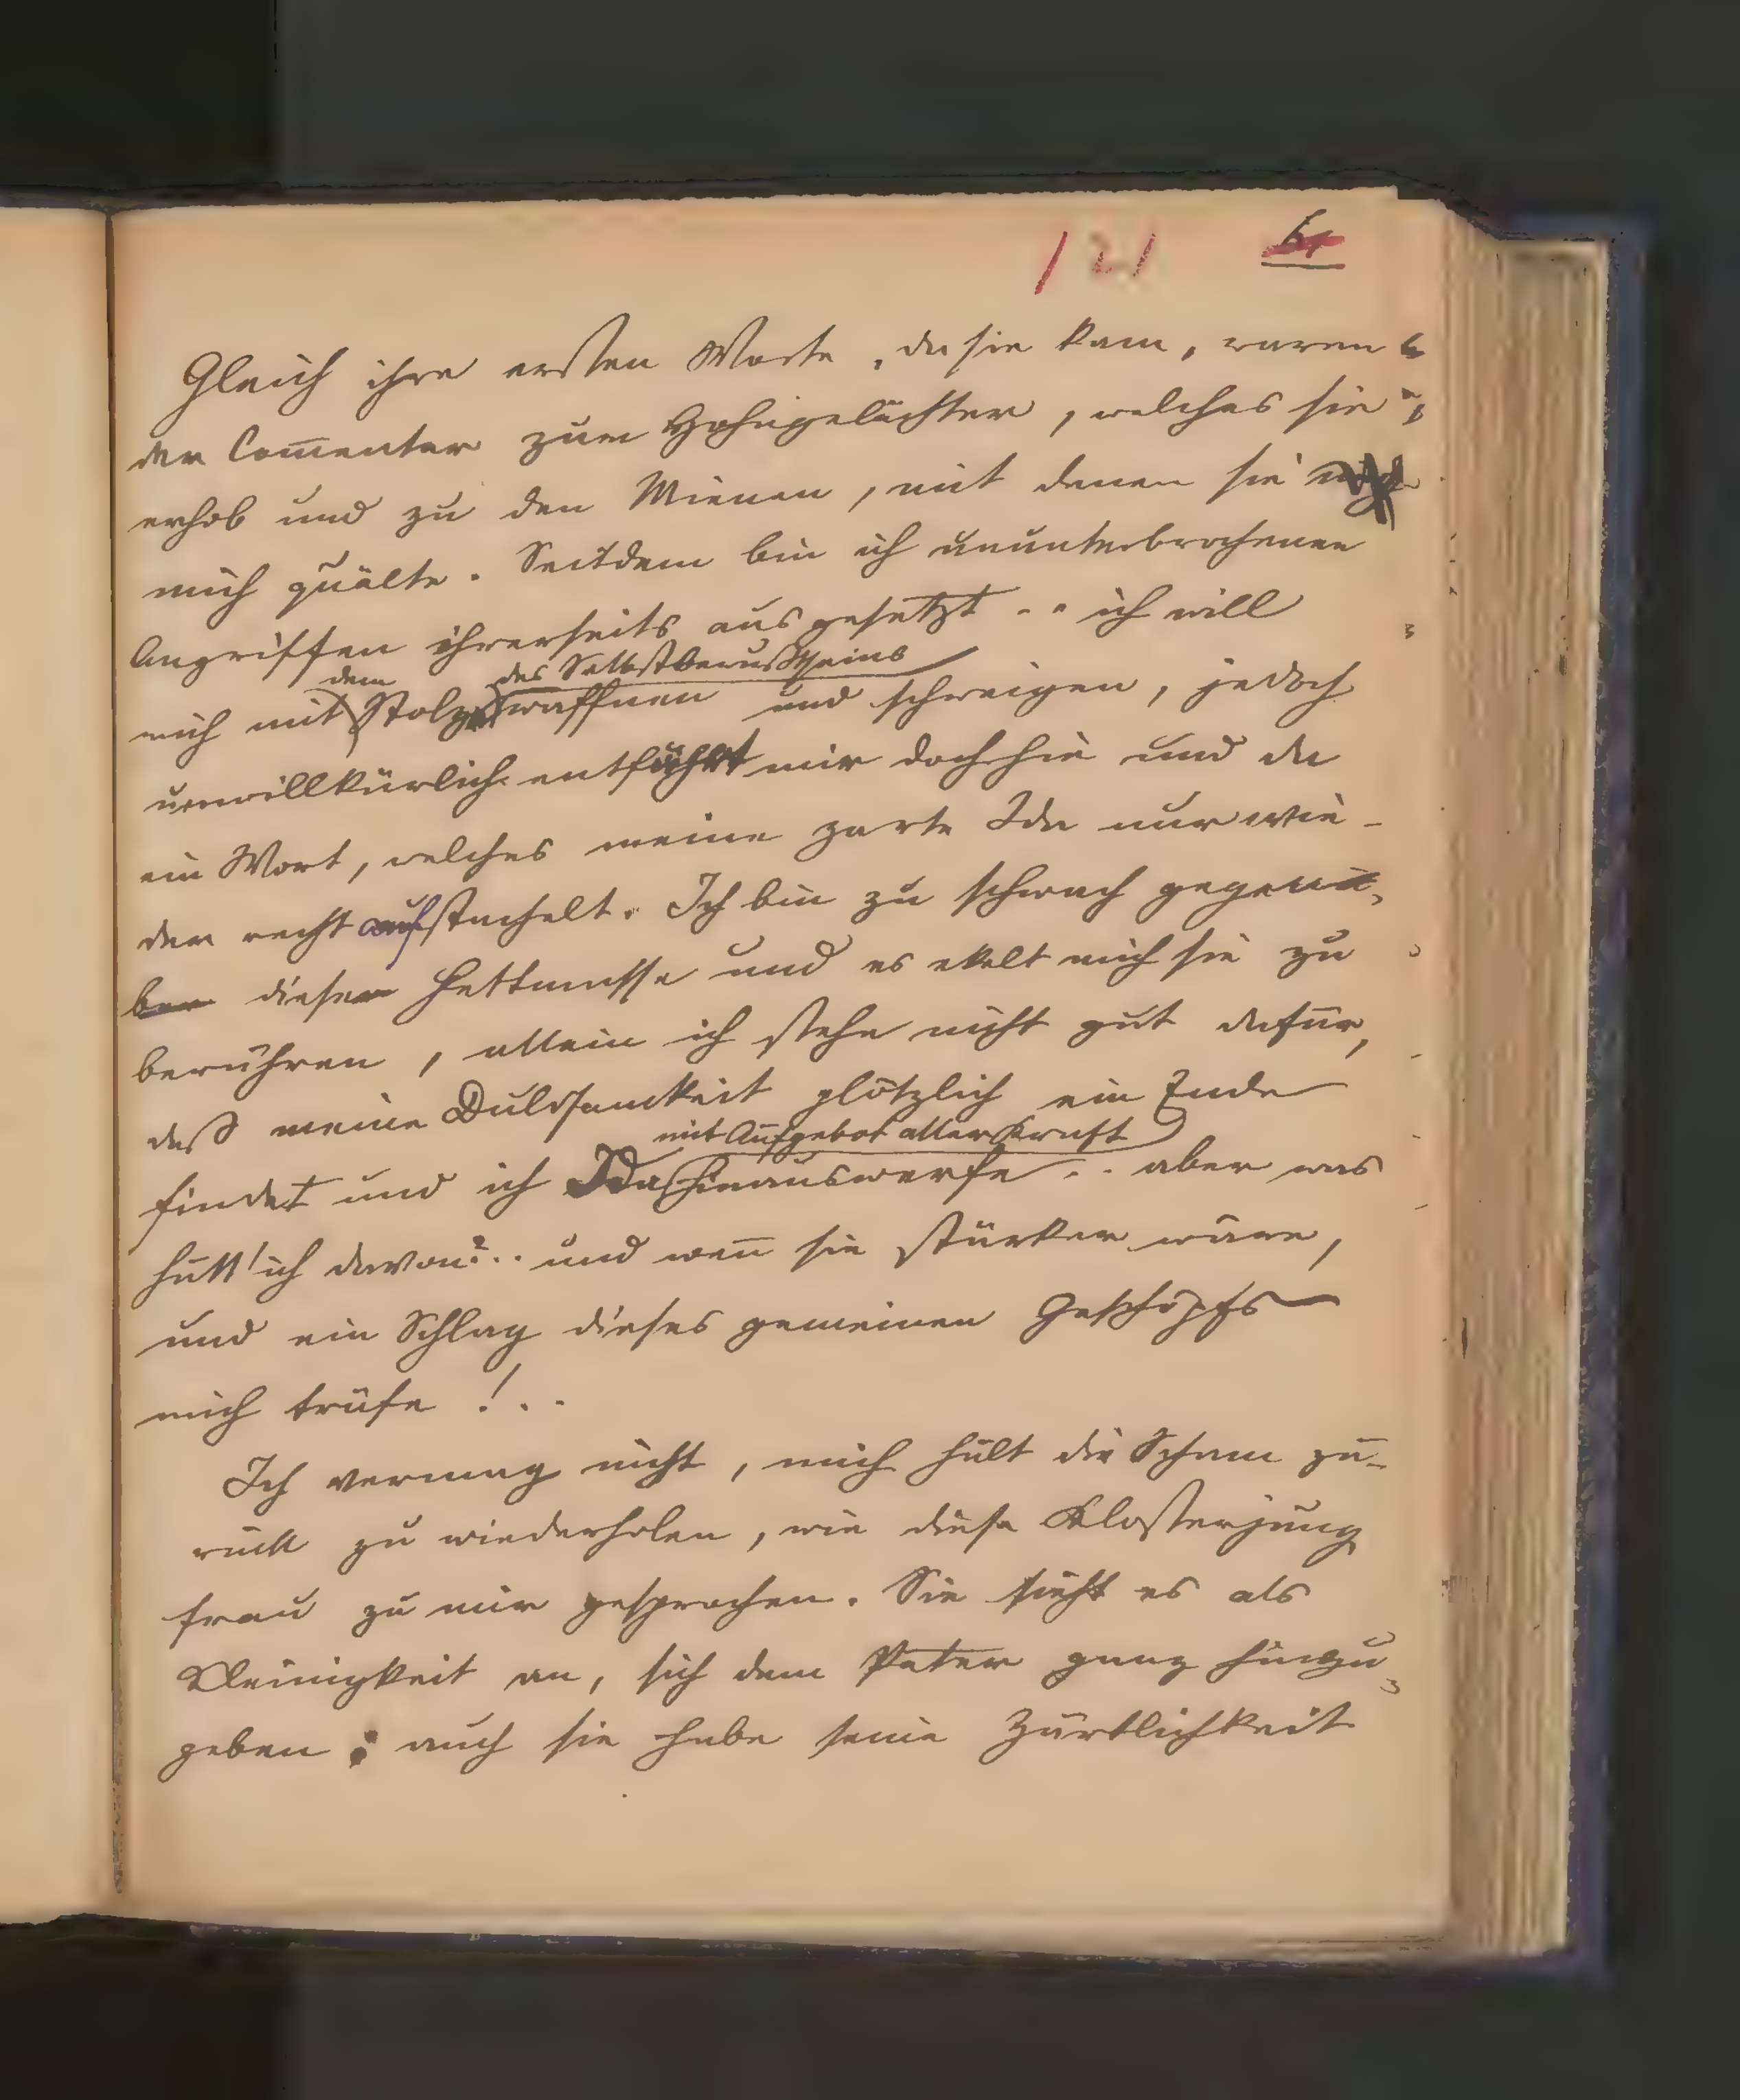 121 61
Gleich ihre ersten Worte, da sie kam, waren
der Com̅entar zum Hohngelächter, welches sie
erhob und zu den Mienen, mit denen sie
mich quälte. Seitdem bin ich ununterbrochenen
Angriffen ihrerseits ausgesetzt .. ich will
dem des Selbstbewußtseins
mich mit Stolz waffnen und schweigen, jedoch
unwillkürlich entfährt mir doch hie und da
ein Wort, welches meine zarte Ida nur wie-
der recht aufstachelt. Ich bin zu schwach gegenü-
ber dieser Fettmasse und es ekelt mich sie zu
berühren, allein ich stehe nicht gut dafür,
daß meine Duldsamkeit plötzlich ein Ende
mit Aufgebot aller Kraft
findet und ich Ida hinauswerfe .. aber was
hätt' ich davon? .. und wen̅ sie stärker wäre,
und ein Schlag dieses gemeinen Geschöpfs
mich träfe! ..
Ich vermag nicht, mich hält die Scham zu-
rück zu wiederholen, wie diese Klosterjung
frau zu mir gesprochen. Sie sieht es als
Kleinigkeit an, sich dem Pater ganz hinzu
geben; auch sie habe seine Zärtlichkeit